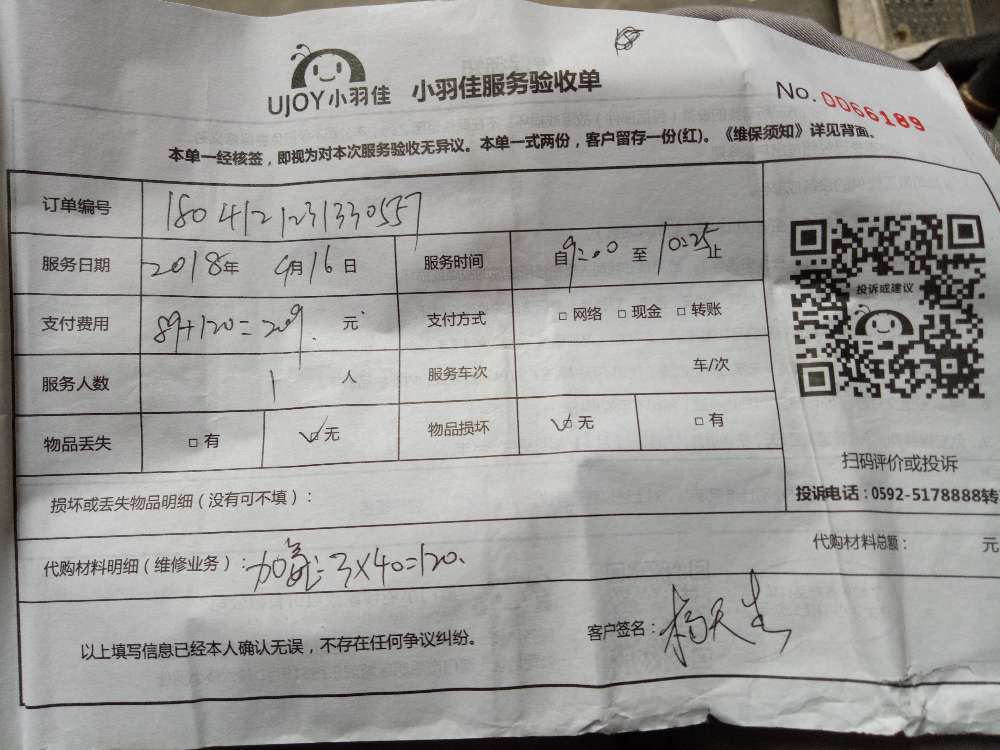 UJOY小羽佳 小羽佳服务验收单
No. 0066189
本单一经核签，即视为对本次服务验收无异议。本单一式两份，客户留存一份(红)。《维保须知》详见背面。
订单编号 1804121231330557
服务日期 2018年 4月16日 服务时间 自9:00至10:25止
支付费用 89+120=209. 元 支付方式 □ 网络 □ 现金 □ 转账
投诉或建议
服务人数 1 人 服务车次 车/次
物品丢失 □ 有 ✓□ 无 物品损坏 ✓□ 无 □ 有
扫码评价或投诉
投诉电话：0592-5178888转
损坏或丢失物品明细（没有可不填）：
代购材料明细（维修业务）：加氟：3×40=120.
代购材料总额： 元
以上填写信息已经本人确认无误，不存在任何争议纠纷。
客户签名：杨天生